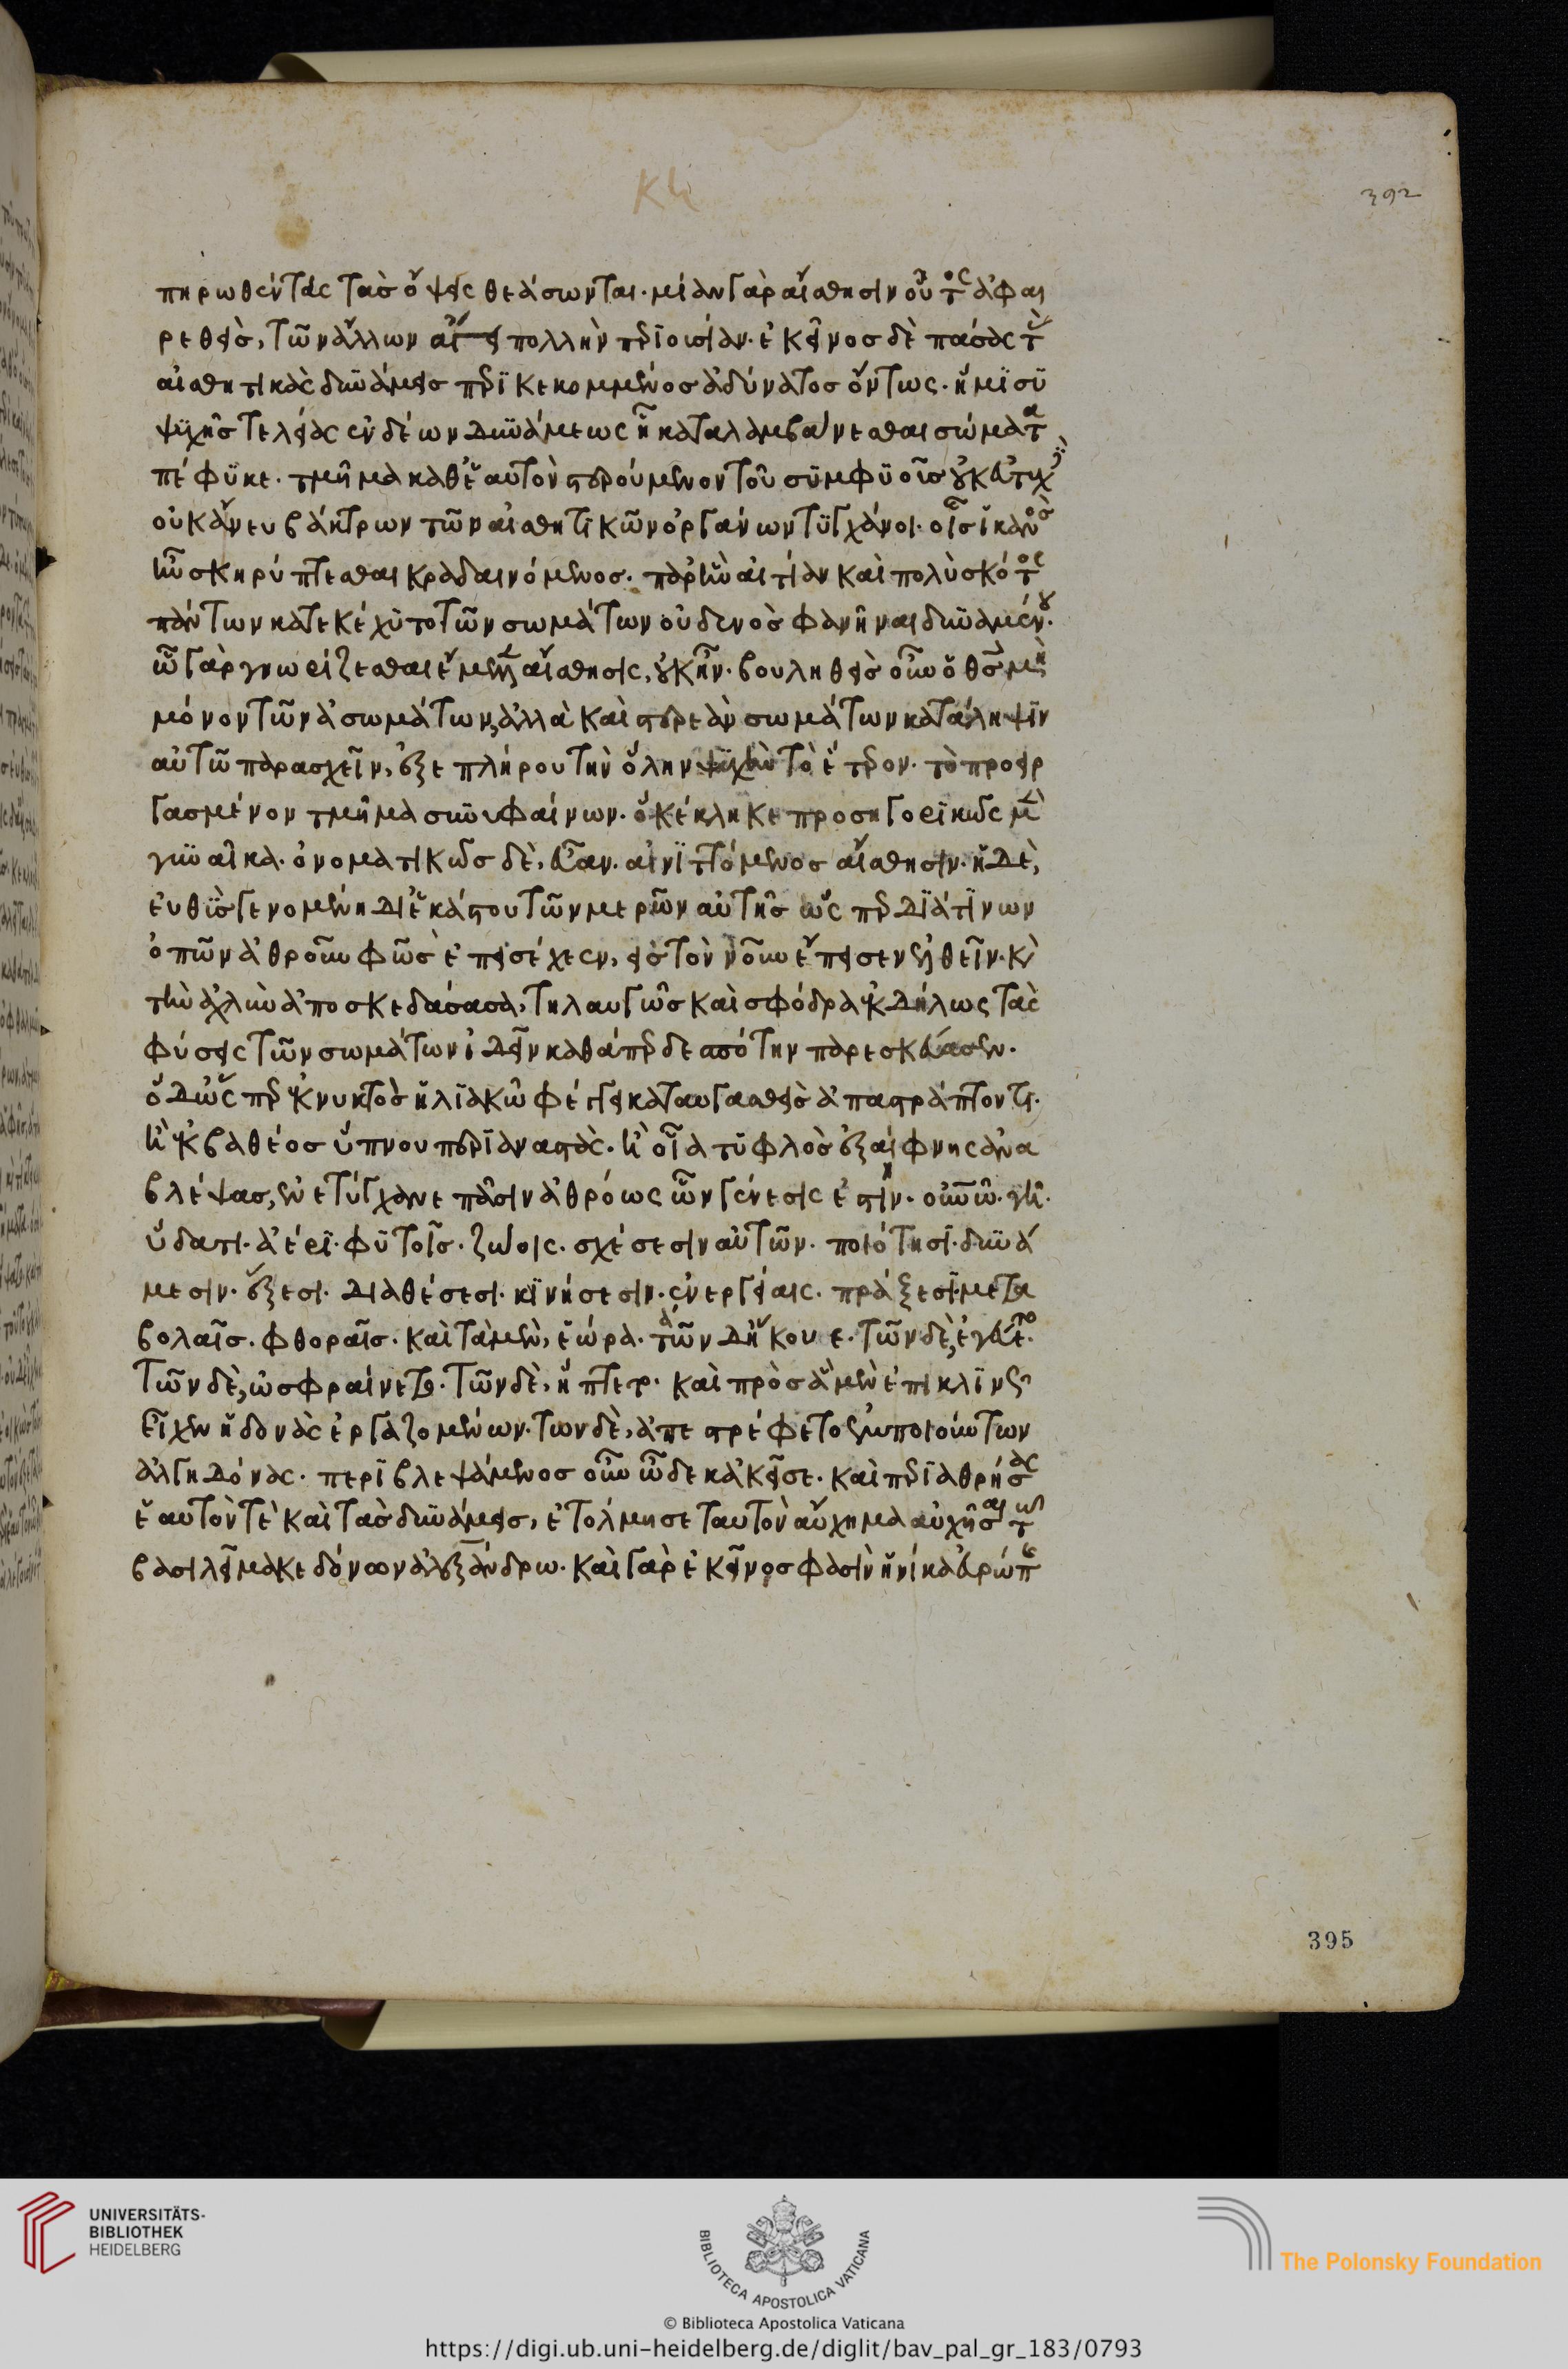 πηρωθέντας τὰς ὄψεις θεάσωνται· μίαν γὰρ αἴσθησιν οὗτος ἀφαι
ρεθεὶς, τῶν ἄλλων ἄγει πολλὴν περιουσίαν· ἐκεῖνος δὲ πάσας τὰς
αἰσθητικὰς δυνάμεις περικεκομμένος ἀδύνατος ὄντως· ἥμισυ
ψυχῆς τελείας ἐνδέων δυνάμεως ᾗ καταλαμβάνεσθαι σώματα
πέφυκε· τμῆμα καθ' ἑαυτὸν στερούμενον τοῦ συμφυοῖς οὐκ εὐτυχ
οὐκ ἄνευ βάκτρων τῶν αἰσθητικῶν ὀργάνων τυγχάνοι· οἷς ἱκανὸς
ἦν σκηρύπτεσθαι κραδαινόμενος· παρ' ἣν αἰτίαν καὶ πολὺ σκότος
πάντων κατεκέχυτο τῶν σωμάτων οὐδενὸς φανῆναι δυναμένου·
ὧ γὰρ γνωρίζεσθαι ἔμελλεν αἴσθησις, οὐκ ἦν· βουληθεὶς οὖν ὁ θς μὴ
μόνον τῶν ἀσωμάτων, ἀλλὰ καὶ στερεῶν σωμάτων κατάληψιν
αὐτῶ παρασχεῖν, ἐξεπλήρου τὴν ὅλην ψυχὴν τὸ ἕτερον· τὸ προειρ
γασμένον τμῆμα συνυφαίνων· ὃ κέκληκε προσηγορικῶς μὲν
γυναῖκα· ὀνοματικῶς δὲ, εὔαν· αἰνιττόμενος αἴσθησιν· ἡ δὲ,
εὐθὺς γενομένη δι' ἑκάστου τῶν μερῶν αὐτῆς ὥσπερ διά τινων
ὀπῶν ἀθρόον φῶς ἐπεισέχεεν, εἰς τὸν νοῦν καὶ
τὴν ἀχλὺν ἀποσκεδάσασα, τηλαυγῶς καὶ σφόδρα ἐκδήλως τὰς
φύσεις τῶν σωμάτων ἰδεῖν καθάπερ δεσπότην παρεσκεύασεν·
ὁ δ' ὥσπερ ἐκ νυκτὸς ἡλιακῶ φέγγει καταυγασθεὶς ἀπαστράπτοντι·
ἢ ἐκ βαθέος ὕπνου περιαναστὰς· ἢ οἷα τυφλὸς ἐξαίφνης ἀνα
βλέψας, ἐνετύγχανε πᾶσιν ἀθρόως ὧν γένεσις ἐστιν· οὐνῶ· γῆ·
ὕδατι· ἀέρι· φυτοῖς· ζώοις· σχέσεσιν αὐτῶν· ποιότησι· δυνά
μεσιν· ἕξεσι· διαθέσεσι· κινήσεσιν· ἐνεργείαις· πράξεσι· μετα
βολαῖς· φθοραῖς· καὶ τὰ μὲν, ἑώρα· τῶν δ' ἤκουε· τῶν δὲ, ἐγεύετο·
τῶν δὲ, ὠσφραίνετο· τῶν δὲ, ἥπτετο· καὶ πρὸς ἃ μὲν ἐπικλινῶς
εἶχεν ἡδονὰς ἐργαζομένων· τῶν δὲ, ἀπεστρέφετο ἐμποιούντων
ἀλγηδόνας· περιβλεψάμενος οὖν ὧδε κἀκεῖσε· καὶ περιαθρήσας
ἑαυτόν τε καὶ τὰς δυνάμεις, ἐτόλμησε ταυτὸν αὔχημα αὐχῆσαι τῶ
βασιλεῖ μακεδόνων ἀλεξάνδρω· καὶ γὰρ ἐκεῖνος φασὶν ἡνίκα εὐρώπης
392
395
UNIVERSITÄTS-
BIBLIOTHEK
HEIDELBERG
BIBLIOTECA APOSTOLICA VATICANA
The Polonsky Foundation
© Biblioteca Apostolica Vaticana
https://digi.ub.uni-heidelberg.de/diglit/bav_pal_gr_183/0793